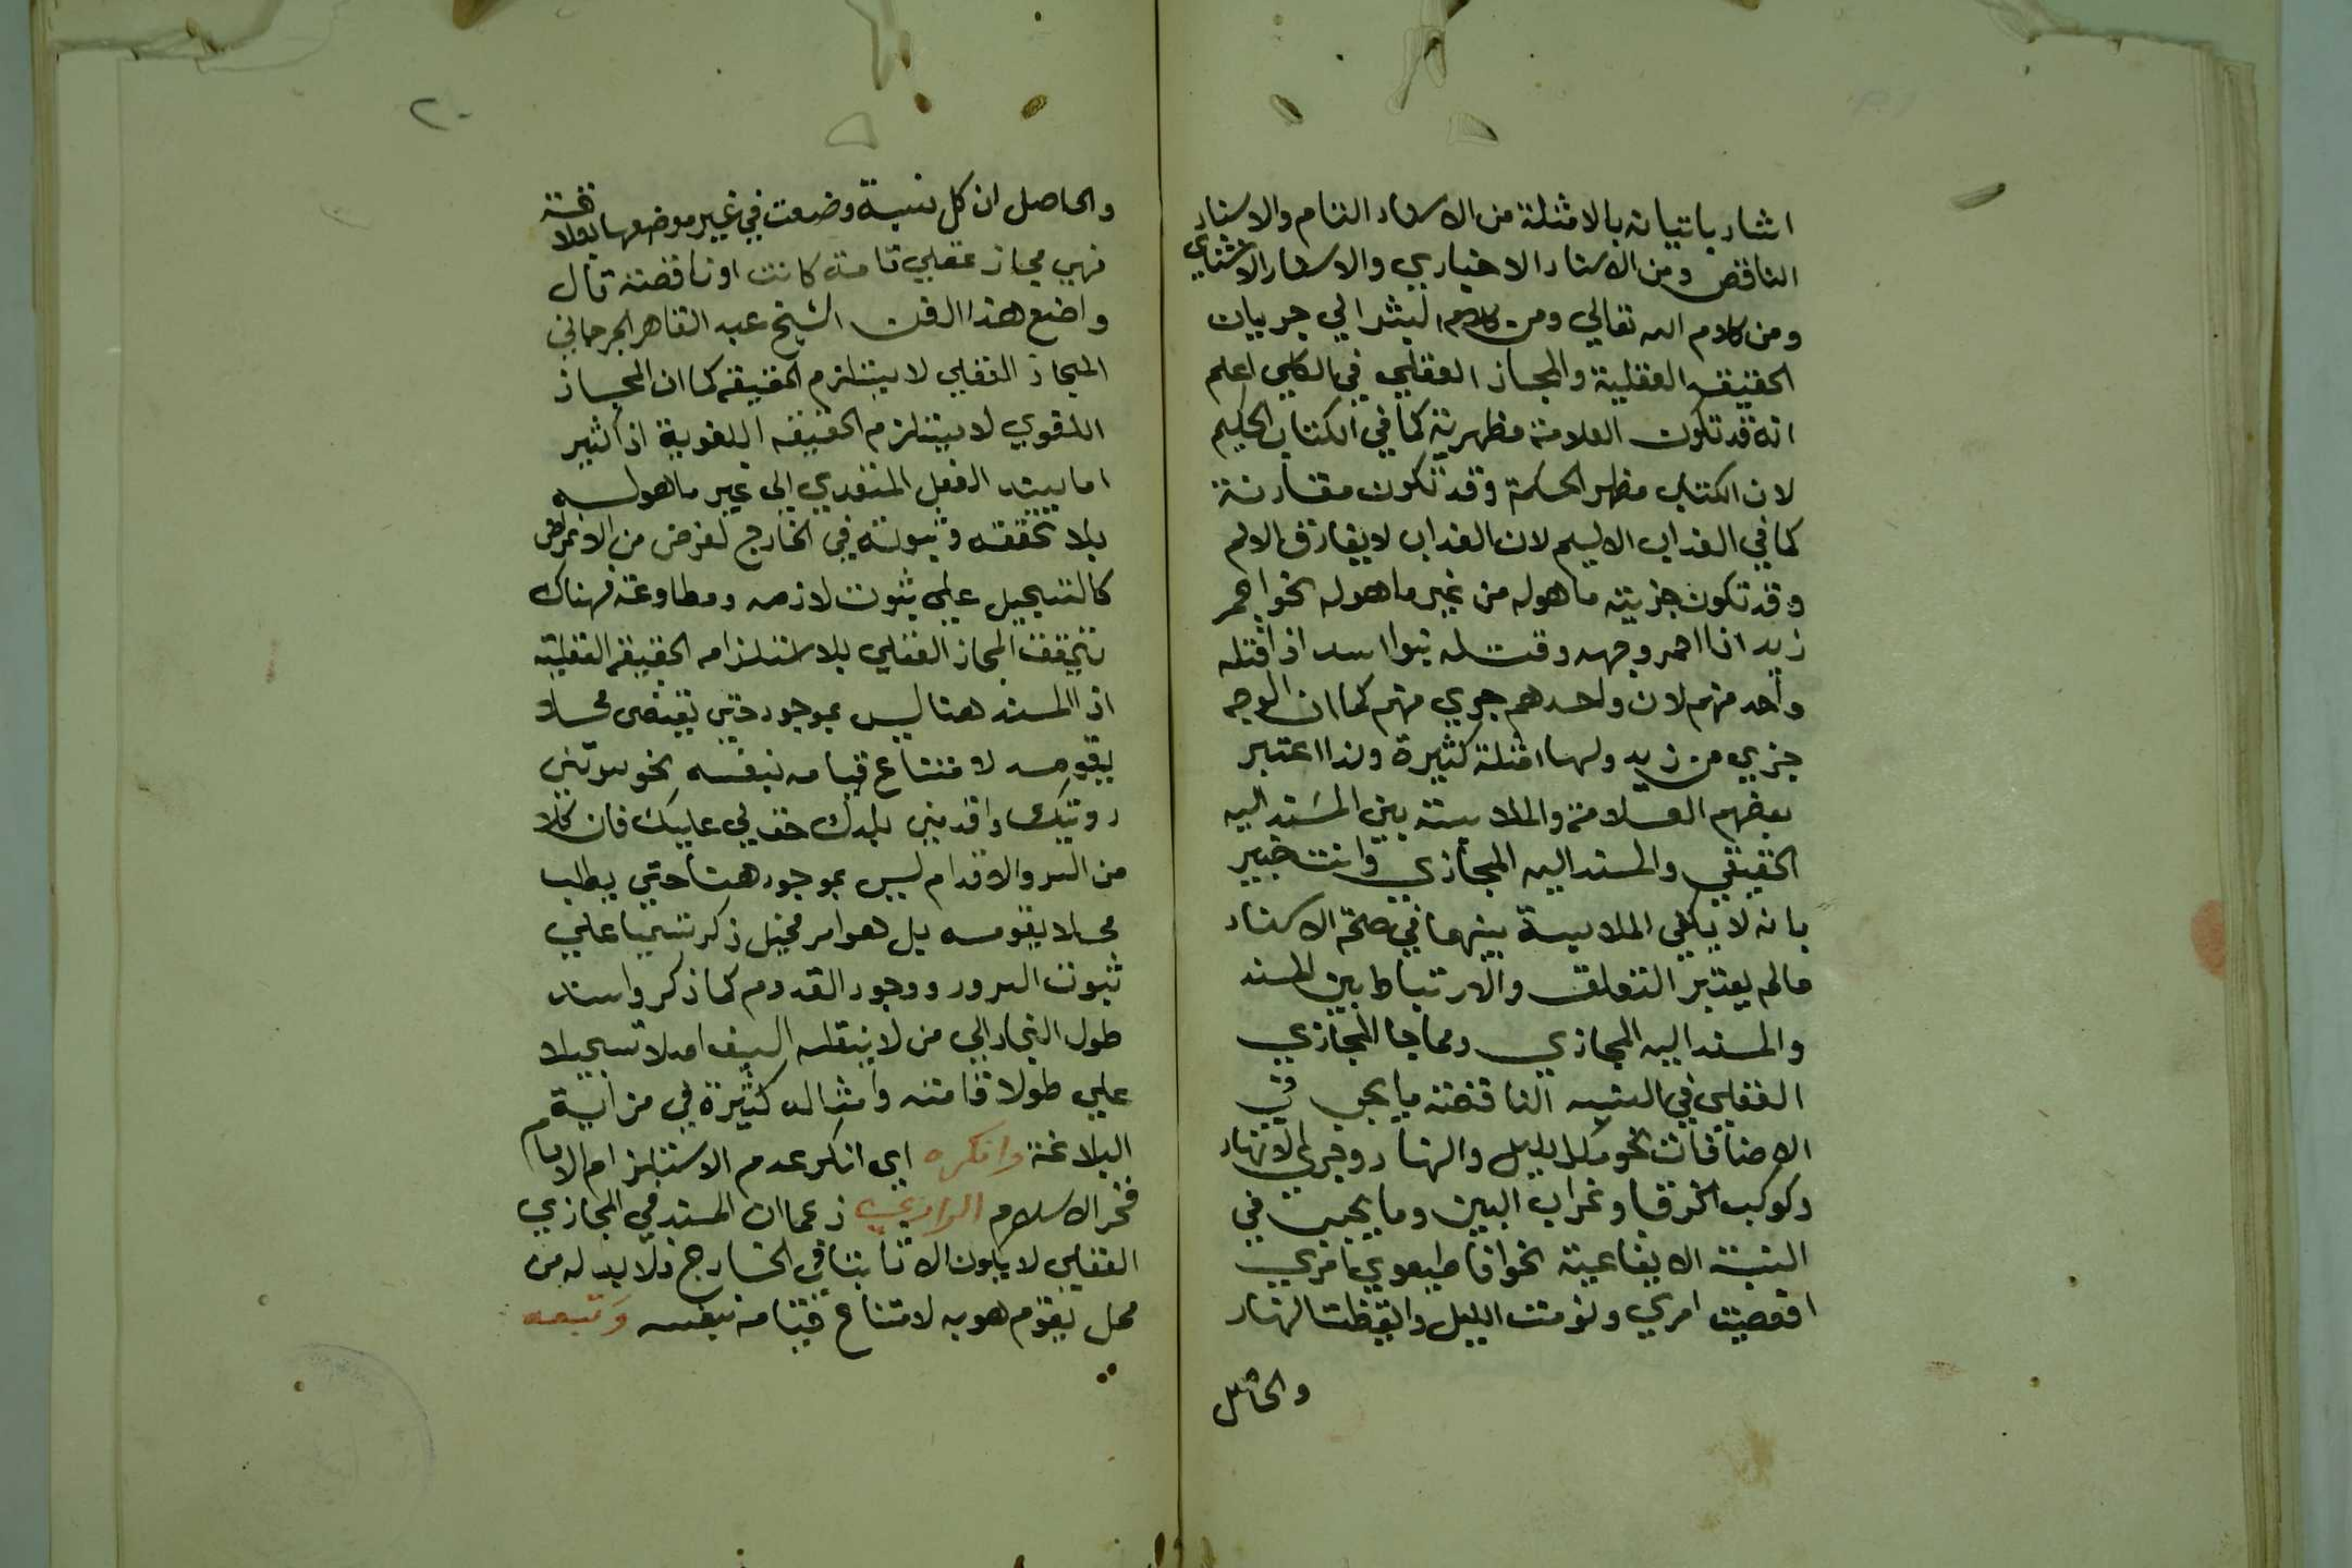 اشار باتيانه بالامثلة من الاسناد التام والاسناد
الناقص ومن الاسناد الاخباري والاسناد الانشاي
ومن كلام الله تعالي ومن كلام البشر الي جريان
الحقيقة العقلية والمجاز العقلي في الكلي اعلم
انه قد تكون العلامة مظهرية كما في الكتاب الحكيم
لان الكتاب مظهر الحكمة وقد تكون مقارنة
كما في العذاب الاليم لان العذاب لا يفارق الالم
وقد تكون جزيته ما هوله من غير ما هوله نحو احمر
زيد اذا احمر وجهه وقتله بنوا اسد اذا قتله
واحد منهم لان واحدهم جزي منهم كما ان الوجه
جزي من زيد ولها امثلة كثيرة ولذا اعتبر
بعضهم العلامة والملابسة بين المسند اليه
الحقيقي والمسند اليه المجازي وانت خبير
بانه لا يكفي الملابسة بينهما في صحة الاسناد
مالم يعتبر التعلق والارتباط بين المسند
والمسند اليه المجازي ومما جا المجازي
العقلي في النسبة الناقصة ما يجي في
الاضافات نحو مكر الليل والنهار وجري الانهار
وكوكب الخرقا وغراب البين وما يجيب في
النسبة الايقاعية نحو اطيعوي امري
اعصيت امري ونومت الليل وايقظت النهار
والحاصل
والحاصل ان كل نسبة وضعت في غير موضعها بعلاقة
فهي مجاز عقلي تامة كانت او ناقصة قال
واضع هذا الفن الشيخ عبد القاهر الجرجاني
المجاز العقلي لا يستلزم الحقيقة كما ان المجاز
اللغوي لا يستلزم الحقيقة اللغوية اذ كثير
اما يسند الفعل المتعدي الى غير ما هو له
بلا تحققه وثبوته في الخارج لغرض من الاغراض
كالتسجيل علي ثبوت لازمه ومطاوعه فهناك
تحقق المجاز العقلي بلا استلزامه الحقيقة العقلية
اذ المسند هنا ليس بموجود حتي يقتضى محلا
يقومه لامتناع قيامه بنفسه نحو سرتني
رويتك واقدمني بلدك حق لي عليك فان كلا
من السر والاقدام ليس بموجود هنا حتي يطلب
محلا يقومه بل هو امر مخيل ذكر تنبيها علي
ثبوت السرور ووجود القدوم كما ذكر واسناد
طول النجاد الي من لا ينقله السيف اصلا تسجيلا
علي طول قامته وامثاله كثيرة في مزاية
البلاغة وانكره اي انكر عدم الاستلزام الامام
فخر الاسلام الرازي زعما ان المسند في المجازي
العقلي لا يكون الا ثابتا في الخارج فلا بد له من
محل يقوم هو به لامتناع قيامه بنفسه وتبعه
٢٠